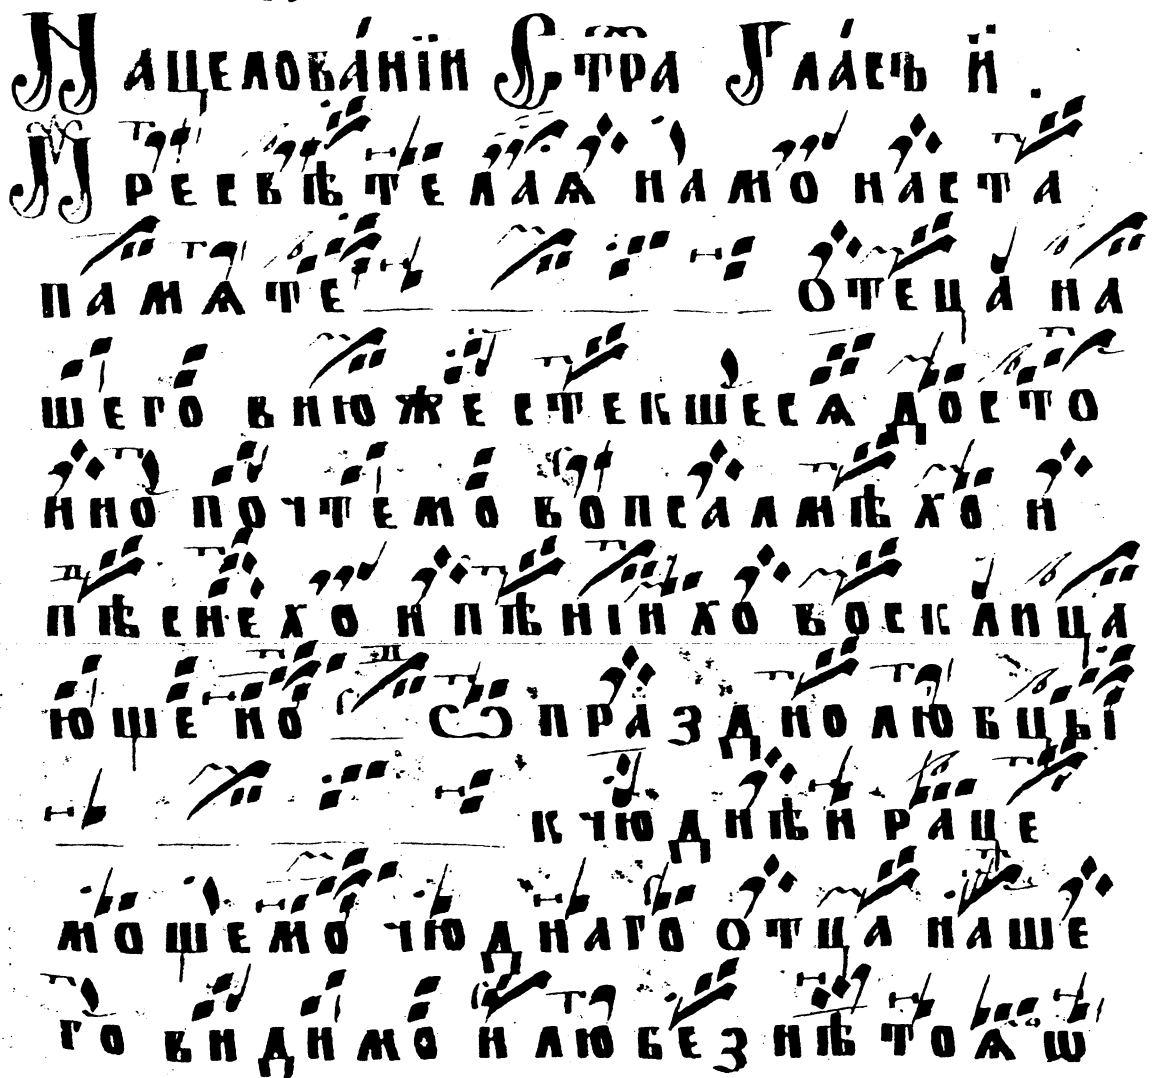 На целованїи Стра Гласъ й .
Пресвѣтелаѧ намо наста
памѧте отеца на
шего вню же стекшесѧ досто
нно почтемо вопсалмѣхо и
пѣснехо и пѣнїихо восклица
юще но Ѡ празднолюбцьі
к чюднѣй раце
мощемо чюднаго отца наше
го видимо и любезнѣ тоѧ ѿ